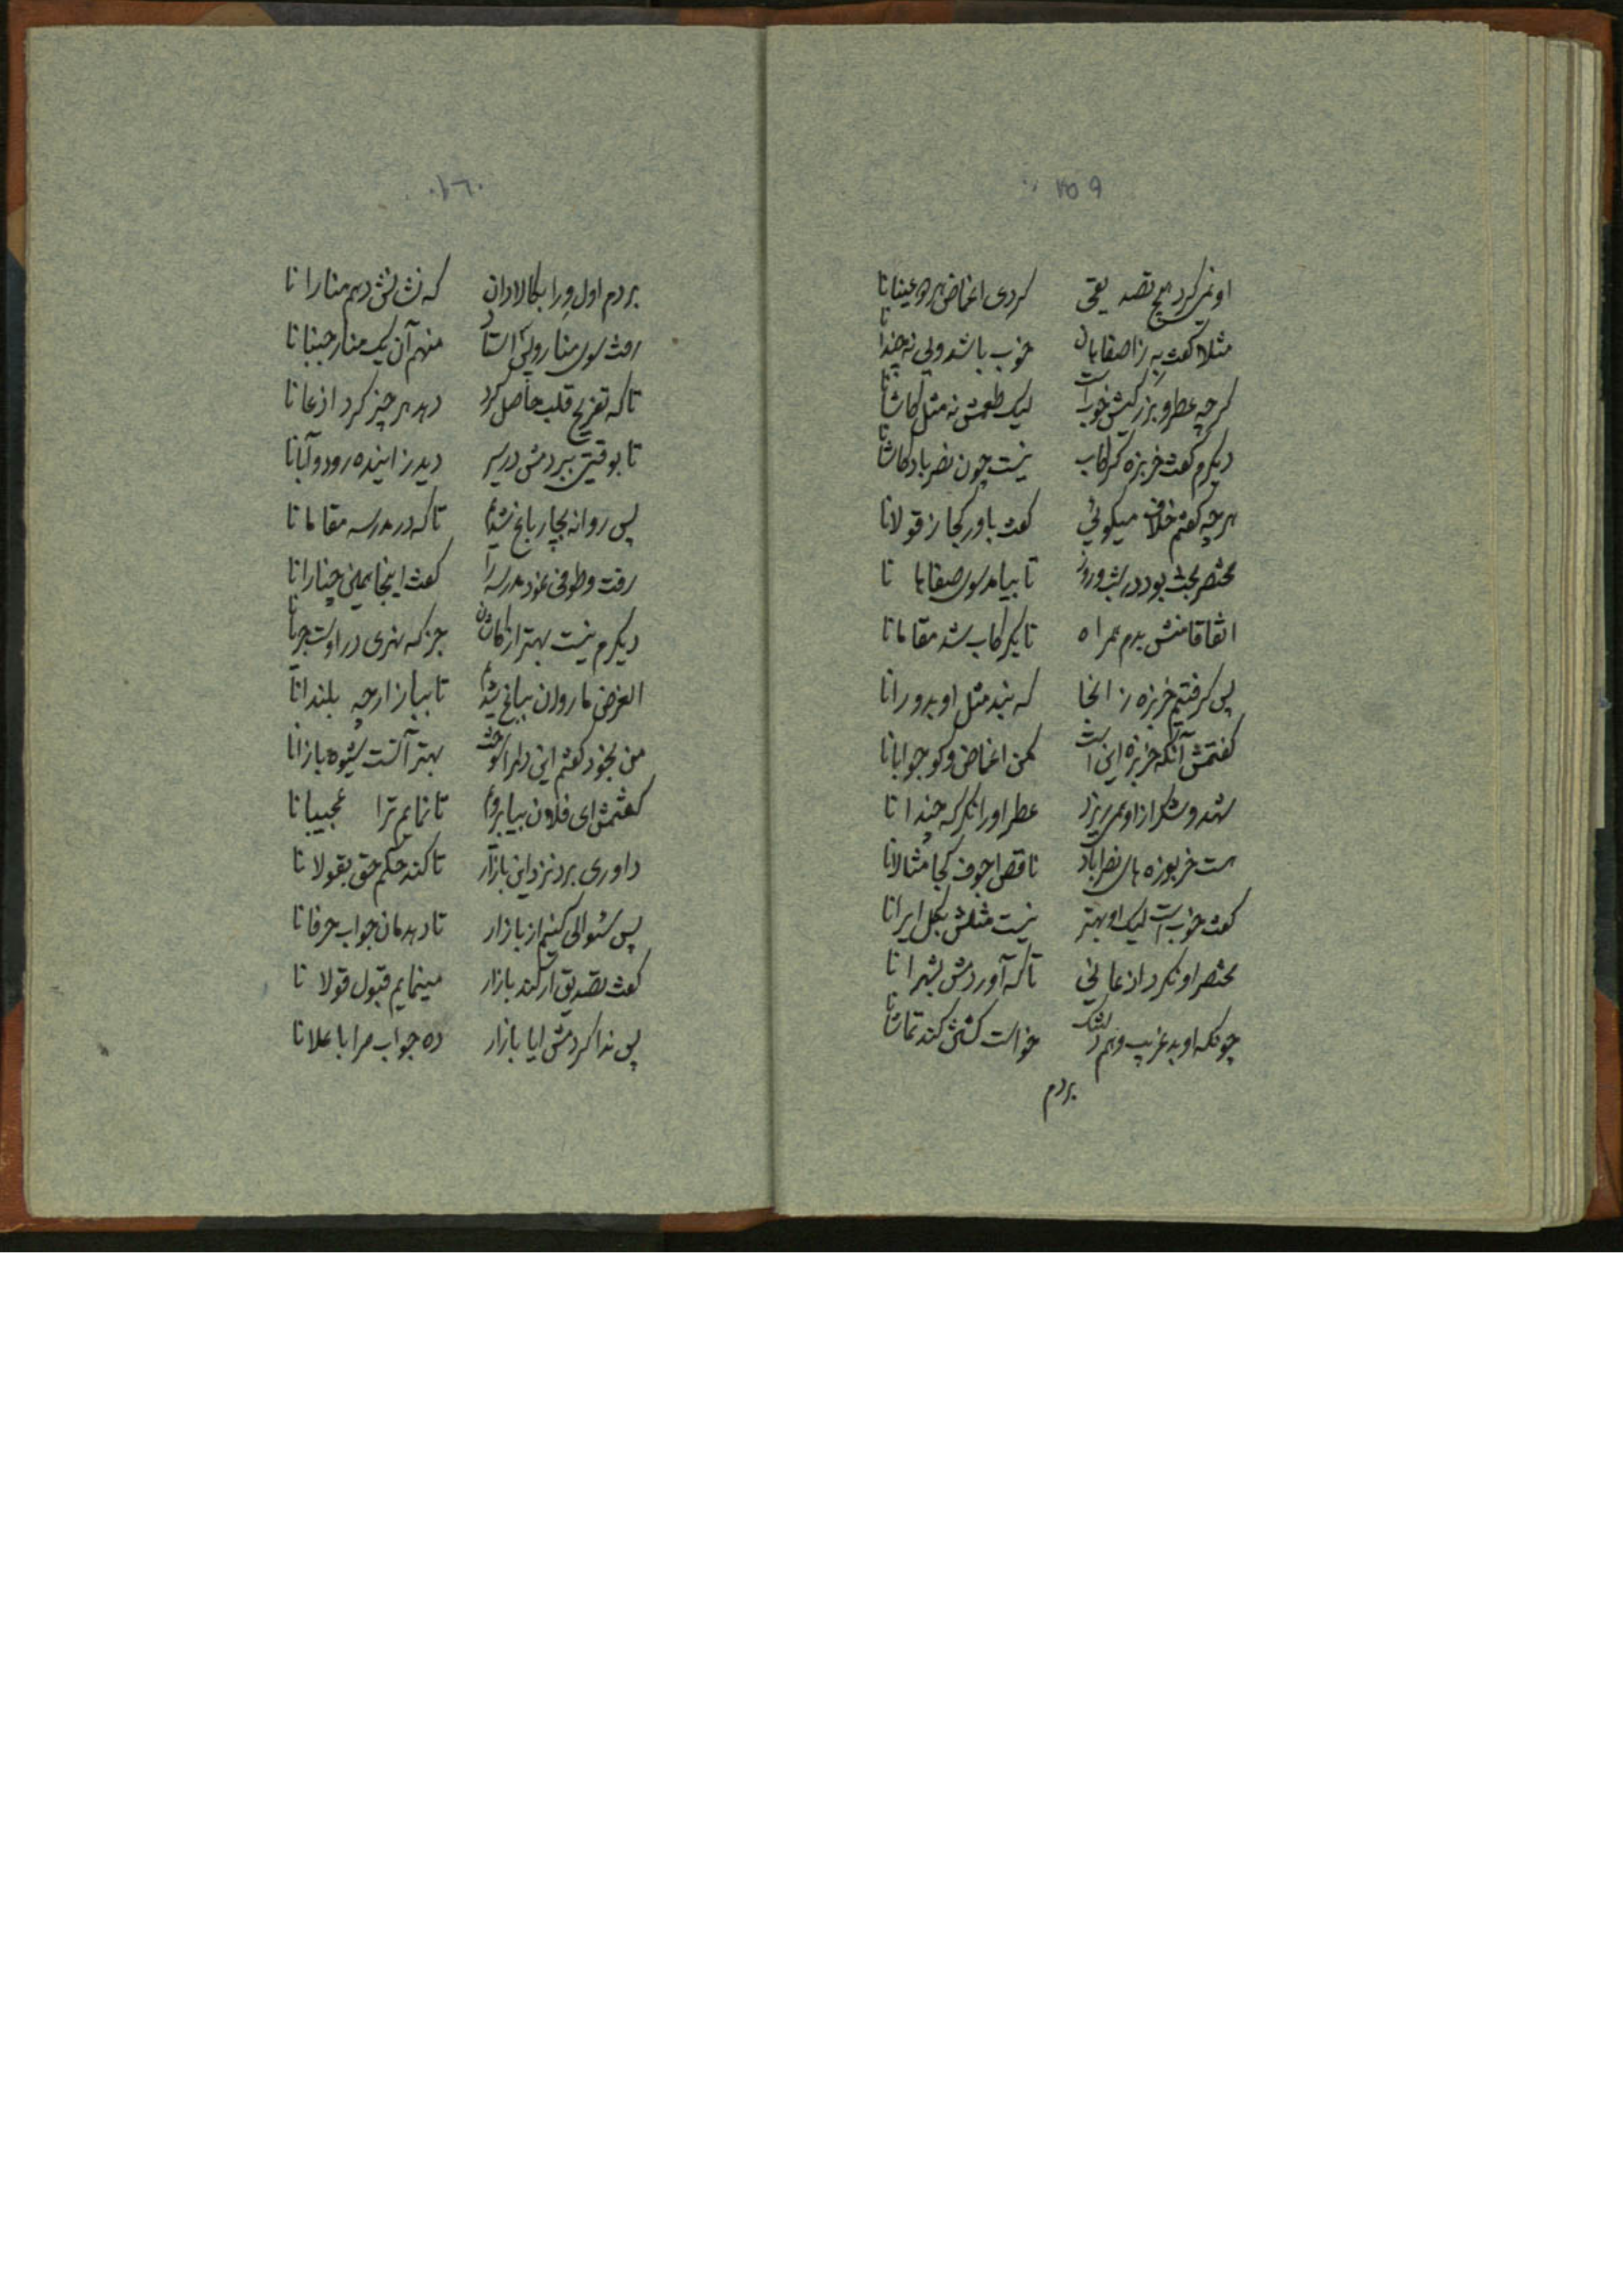 ١٥٩
او نمیکرد هیچ تصدیقی کردی اغماض هر عینانا
مثلا گفت به ز اصفاهان خوب باشد ولی نه چندانا
گرچه عطر و بزرگیش خوب است لیک طعمش نه مثل کاشانا
دیگرم گفت خربزه گرگاب نیست چون نصرباد کاشانا
هرچه گفتم خلاف میگوئی گفت باور کجا ز قولانا
مختصر بحث بود در شب و روز تا بیامد سوی صفاهانا
اتفاقا منش بدم همراه تا بگرگاب شد مقامانا
پس گرفتیم خربزه ز انجا که نبد مثل او بدورانا
گفتمش آنکه خربزه این است مکن اغماض و گو جوابانا
شهد و شکر از او همی ریزد عطر او را نگر که چندانا
هست خربوزه های نصراباد ناقص اجوف کجا مثالانا
گفت خوب است لیک او بهتر نیست مثلش بکل ایرانا
مختصر او نکرد اذعانی تا که آوردمش بشهرانا
چونکه او بد غریب و هم خواست گشتی کند تماشانا
بردم
١٦٠
بردم اول ورا بکالادان که نشانش دهم منارانا
رفت سوی منار و لی استاد منهم آن یک منار جنبانا
تا که تفریح قلب حاصل کرد دید هر چیز کرد اذعانا
تا بوقتی ببردمش در سر دید زاینده رود و آبانا
پس روانه بچارباغ شدیم تا که در مدرسه مقامانا
رفت و طوفی نمود مدرسه را گفت اینجا همین چنارانا
دیگرم نیست بهتر از کاشان جز که نهری در اوست جریانا
الغرض ما روان بباغ شدیم تا ببازارچه بلندانا
من بخود گفتم این دلم را سوخت بهتر آنست شیوه بازانا
گفتمش ای فلان بیا برویم تا نمایم ترا عجیبانا
داوری برد نزد این بازار تا کند حکم حق بقولانا
پس سئوالی کنیم از بازار تا دهدمان جواب حرفانا
گفت تصدیق ار کند بازار مینمایم قبول قولانا
پس ندا کردمش ایا بازار ده جواب مرا باعلانا